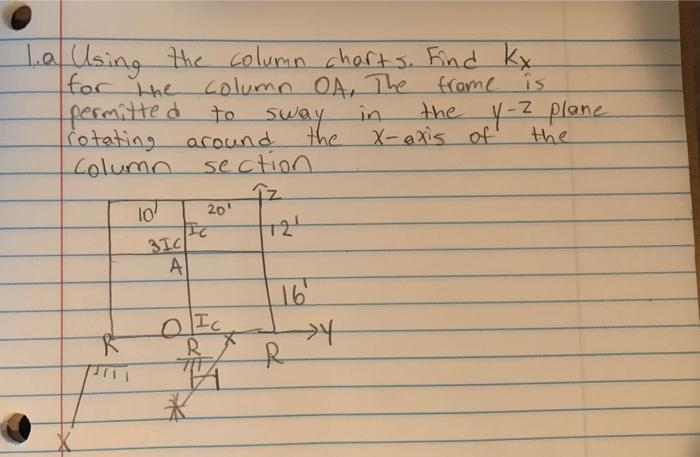 1.a Using the column charts. Find Kx
for the column OA, The frame is
permitted to sway in the y-z plane
rotating around the x-axis of the
column section
Z
10' 20'
Ic 12'
3Ic
A
16'
O Ic
X Y
R R R
X